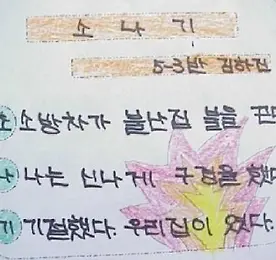 소 나 기
5-3반 김하진
소 소방차가 불난집 불을 끈
나 나는 신나게 구경을 했다
기 기절했다. 우리집이 었다.